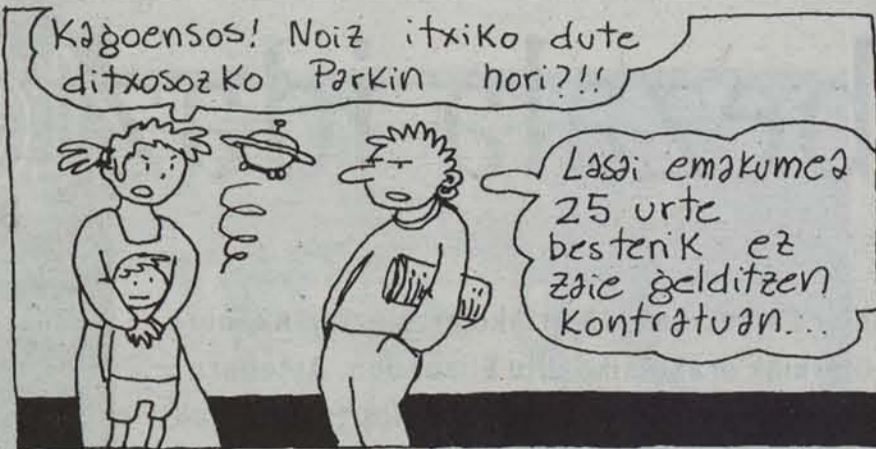 Kagoensos! Noiz itxiko dute
ditxosozko Parkin hori?!!
Lasai emakumea
25 urte
besterik ez
zaie gelditzen
kontratuan...